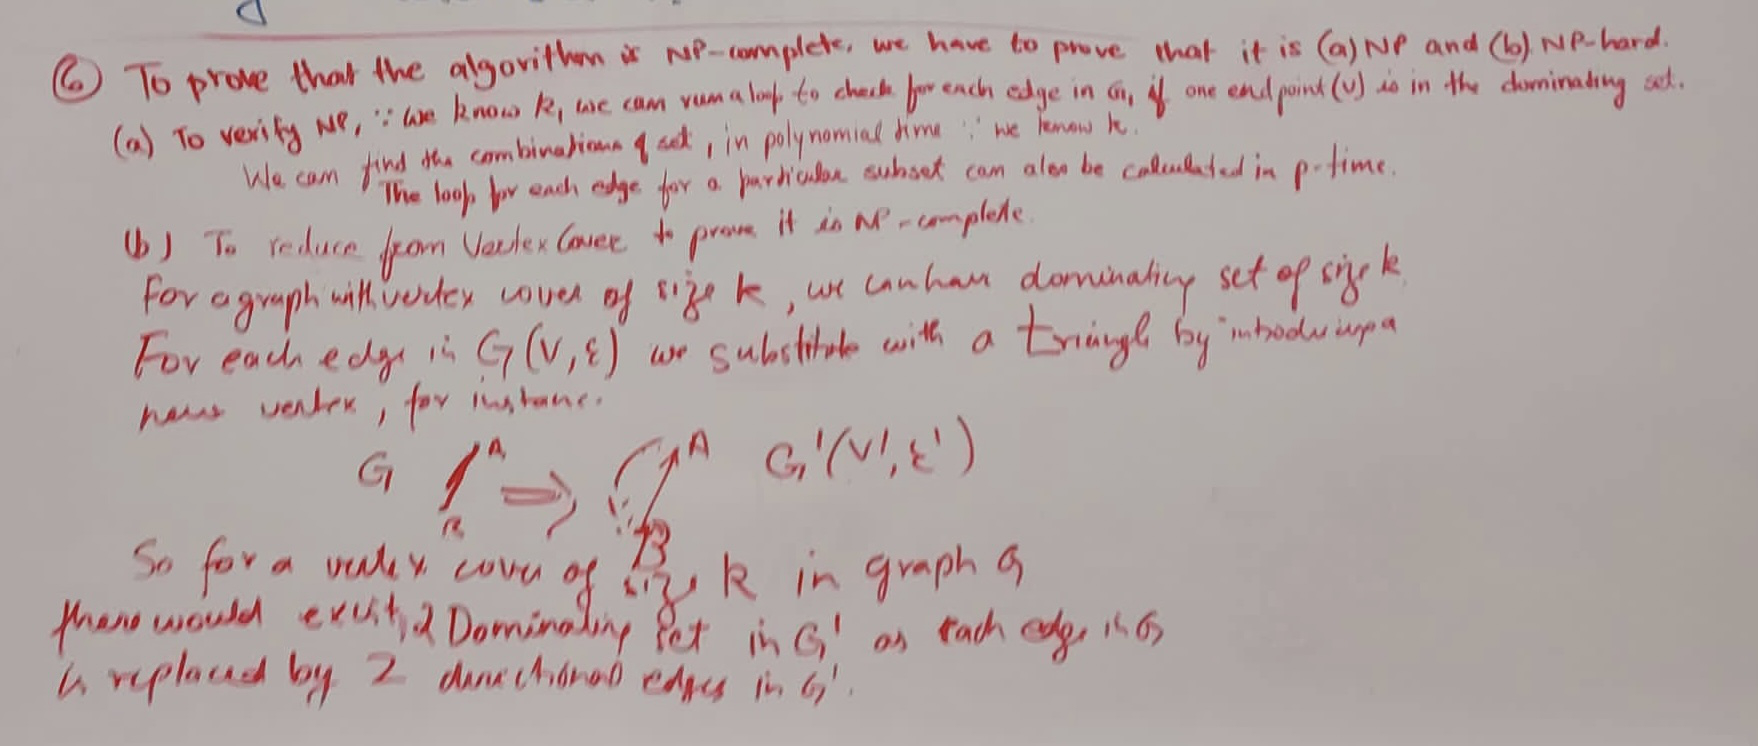 ⑥ To prove that the algorithm is NP-complete, we have to prove that it is (a) NP and (b) NP-hard.
(a) To verify NP, ∵ we know k, we can run a loop to check for each edge in G, if one endpoint (v) is in the dominating set.
We can find the combinations of set, in polynomial time ∵ we know k.
The loop for each edge for a particular subset can also be calculated in p-time.
(b) To reduce from Vertex Cover to prove it is NP-complete.
For a graph with vertex cover of size k, we can have dominating set of size k.
For each edge in G(V, E) we substitute with a triangle by introducing a
new vertex, for instance.
G A ⇒ A G'(V', E')
B B
So for a vertex cover of size k in graph G
there would exist, 2 Dominating set in G' as each edge in G
is replaced by 2 directional edges in G'.